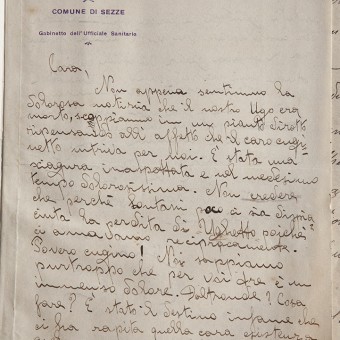 COMUNE DI SEZZE
Gabinetto dell'Ufficiale Sanitario
Cara,
Non appena sentimmo la
dolorosa notizia che il nostro Ugo era
morto, scoppiammo in un pianto dirotto
ripensando all'affetto che il caro cugi
netto nutriva per noi. È stata una
sciagura inaspettata e nel medesimo
tempo dolorosissima. Non credere
che perché lontani poco ci sia dispia
ciuta la perdita di Ughetto poiché
ci amavamo reciprocamente.
Povero cugino! Noi sappiamo
purtroppo che per voi tre è un
immenso dolore. D'altronde? Cosa
fare? È stato il destino infame che
ci ha rapita quella cara esistenza